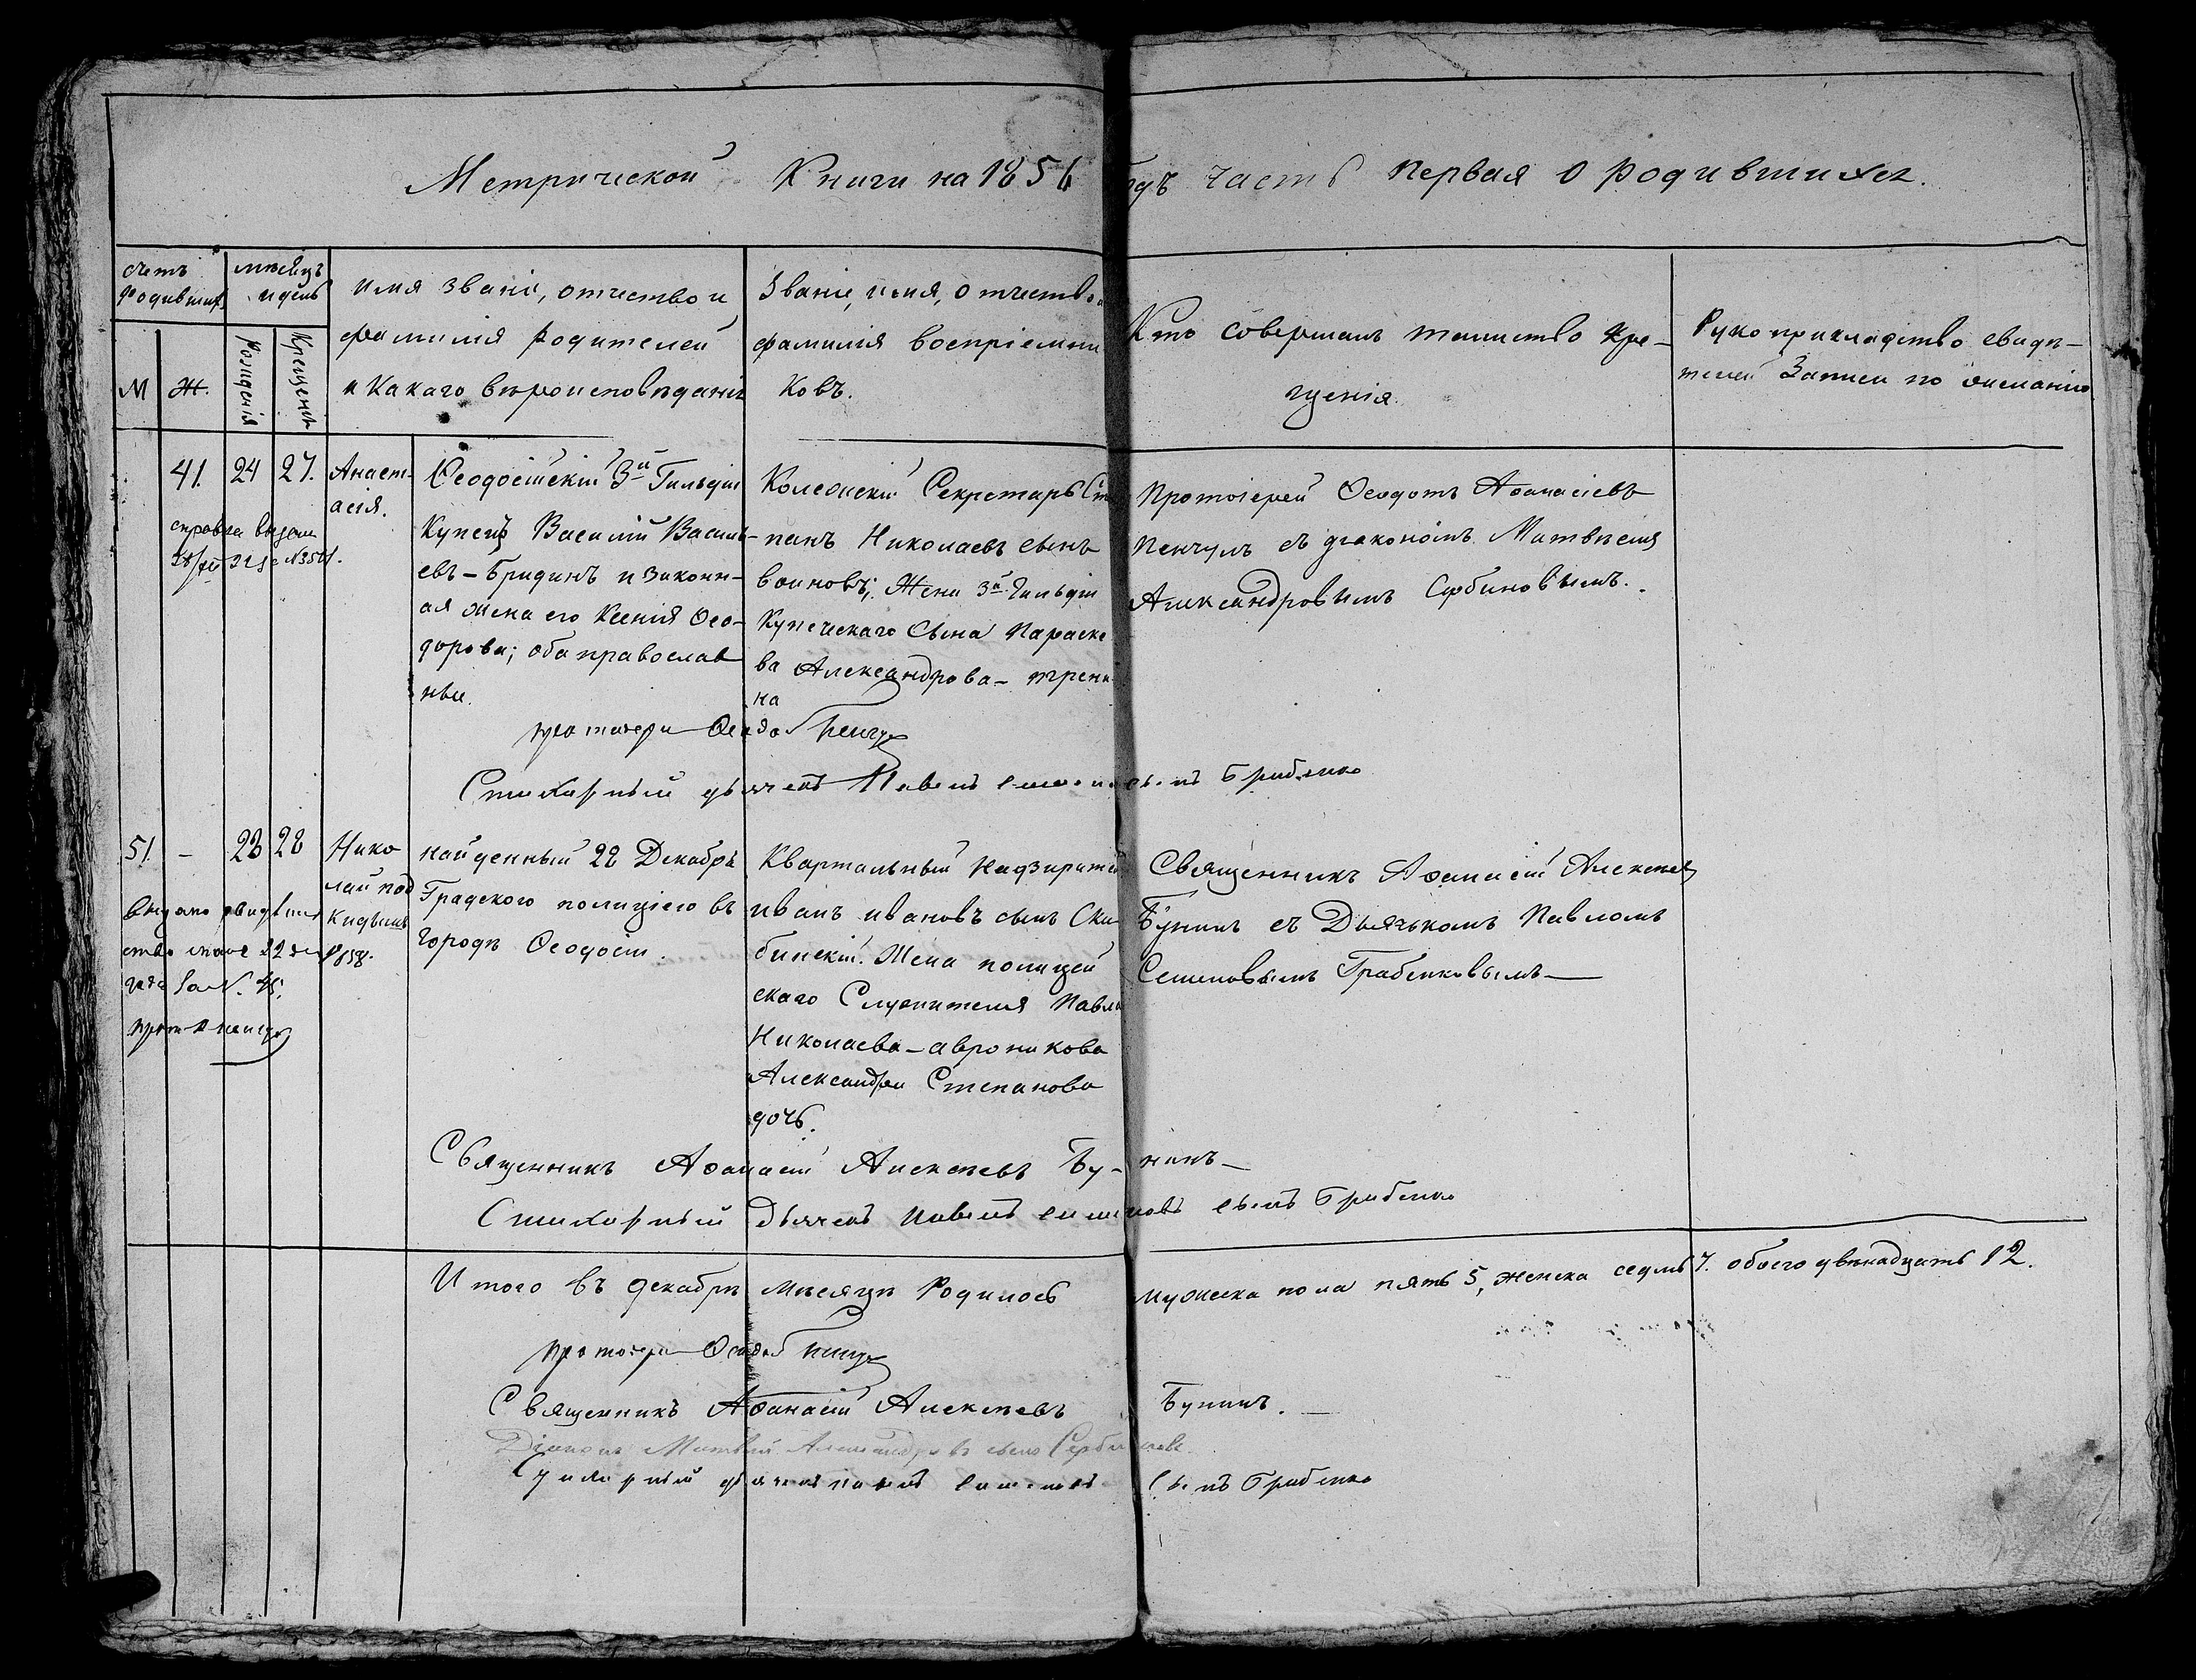 Метрической Книги на 1856 годъ часть первая о родившихся.
счетъ родившихся
мѣсяцъ и день
М
Ж.
Рожденія
Крещенія
имя званіе, отчество и
фамилія Родителей
и Какаго вѣроисповѣданія
Званіе, имя, отчество и
фамилія воспріемни
ковъ.
Кто совершалъ таинство кре-
щенія.
Рукоприкладство свидѣ-
телей Записи по желанію
41. 24 27.
Анаст-
асія.
справка выдана
Ѳеодосійскій 3й Гильдіи
Купецъ Василій Василь-
евъ-Бридинъ и законн-
ая жена его Ксенія Ѳео-
дорова; оба православ
ные.
Колежскій Секретарь Сте
панъ Николаевъ сынъ
воиновъ; Жена 3й Гильдіи
Купеческаго Сына Параске
ва Александрова-
на
Протоіерей Ѳеодотъ Аѳанасіевъ
Пенчулъ съ діакономъ Матвѣемъ
Александровымъ Сербиновымъ.
протоіерей Ѳеодотъ Пенчулъ
Стихарный дьячекъ Павелъ Семеновъ сынъ Грибенко
51. - 28 28
Нико
лай под
кидышъ
найденный 28 Декабря
Градского полиціею въ
Городѣ Ѳеодосіи.
Квартальный Надзиратель
иванъ ивановъ сынъ Ски
бинскій. Жена полицей
скаго Служителя Павла
Николаева-авроникова
Александра Степанова
дочь.
Священникъ Аѳанасій Алексѣевъ
Бунинъ съ Дьячькомъ Павломъ
Семеновымъ Грабенковымъ
выдано свидѣтель
ство
1858.
года за N. 45.
Священникъ Аѳанасій Алексѣевъ Бу-нинъ
Стихарный Дьячекъ Павелъ Семеновъ сынъ Грибенко
Итого въ декабрѣ мѣсяцѣ Родилось мужеска пола пять 5, женска седмь 7. обоего двенадцать 12.
протоіерей Ѳеодотъ Пенчулъ
Священникъ Аѳанасій Алексѣевъ Бунинъ.
Діаконъ Матвѣй Александровъ сынъ Сербиновъ
Стихарный дьячекъ Павелъ Семеновъ сынъ Грибенко